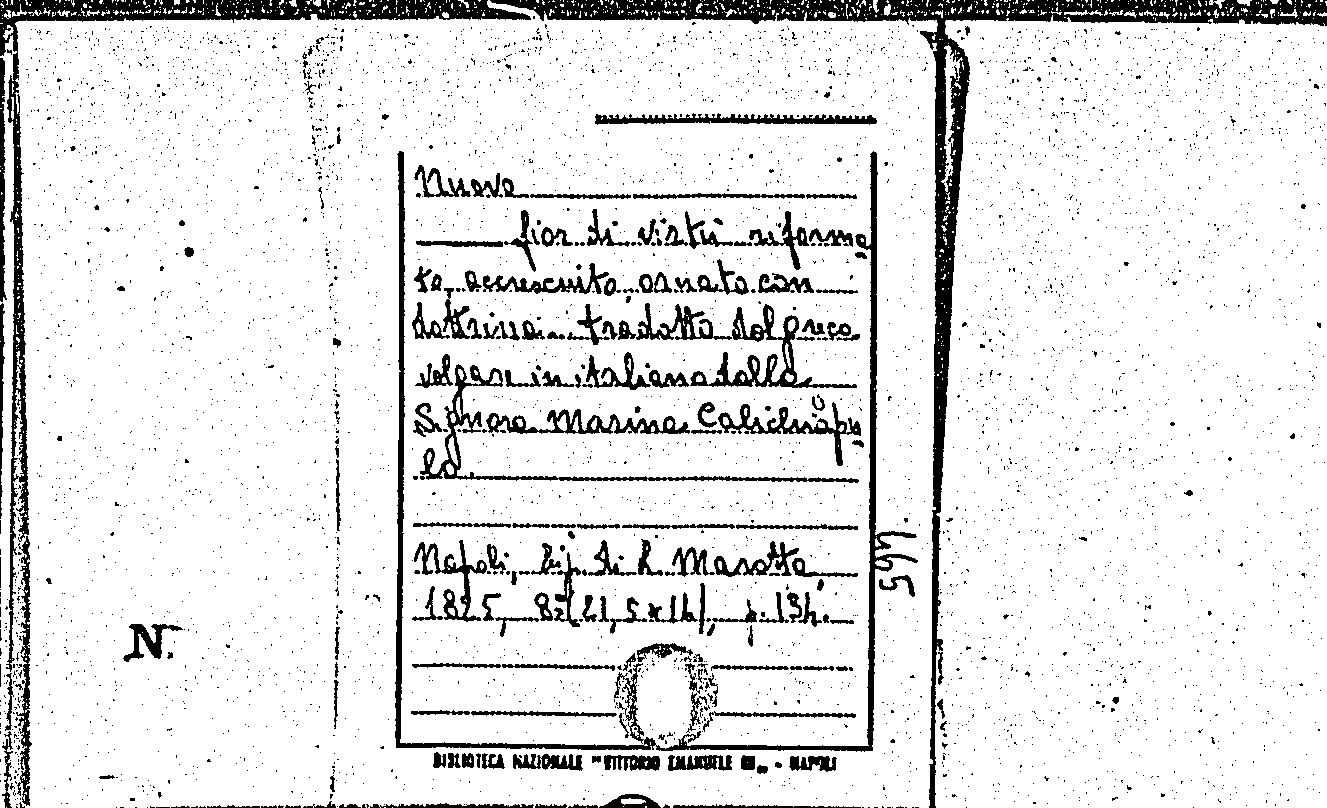 Nuovo
fior di virtù riforma,
to, accresciuto, ornato con
dottrina... tradotto dal greco
volgare in italiano dalla
Signora Marina Calichiòpu,
lo.
Napoli, Tip. di L. Marotta,
1825, 8º (21,5 x 16), p. 134.
N.
BIBLIOTECA NAZIONALE "VITTORIO EMANUELE III„ - NAPOLI